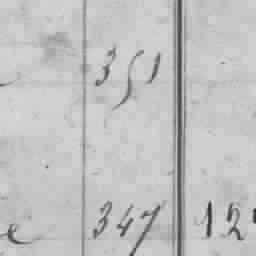 351
e 347 12